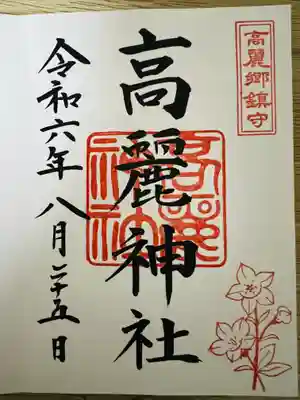 高麗郷鎮守
高麗神社
令和六年八月二十五日
高麗神社